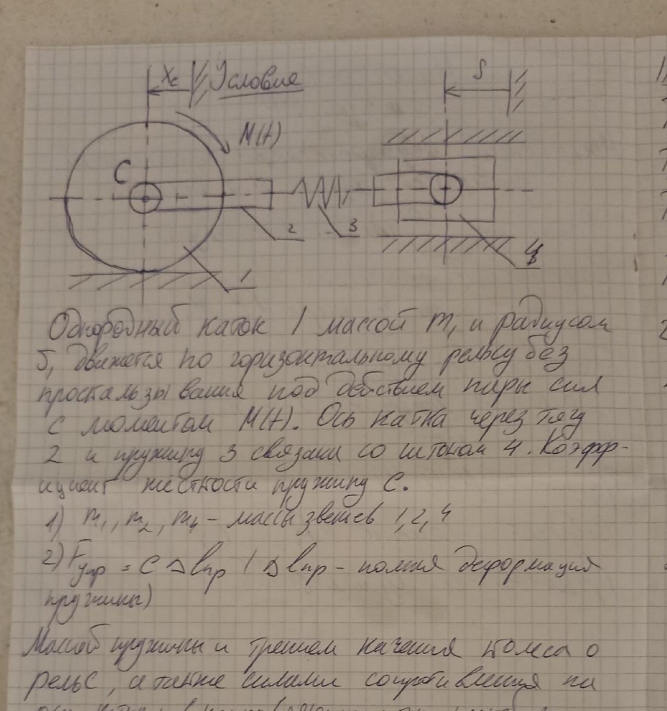 Xc Условие S
M(t)
C
2 3
4
1
Однородный каток 1 массой m, и радиусом
5, движется по горизонтальному рельсу без
проскальзывания под действием пары сил
с моментом M(t). Ось катка через тягу
2 и пружину 3 связана со штоком 4. Коэфф-
ициент жесткости пружины C.
1) m₁, m₂, m₄ - массы звеньев 1, 2, 4
2) Fупр = C Δlпр / Δlпр - полная деформация
пружины)
Массой пружины и трением качения колеса о
рельс, а также силами сопротивления на